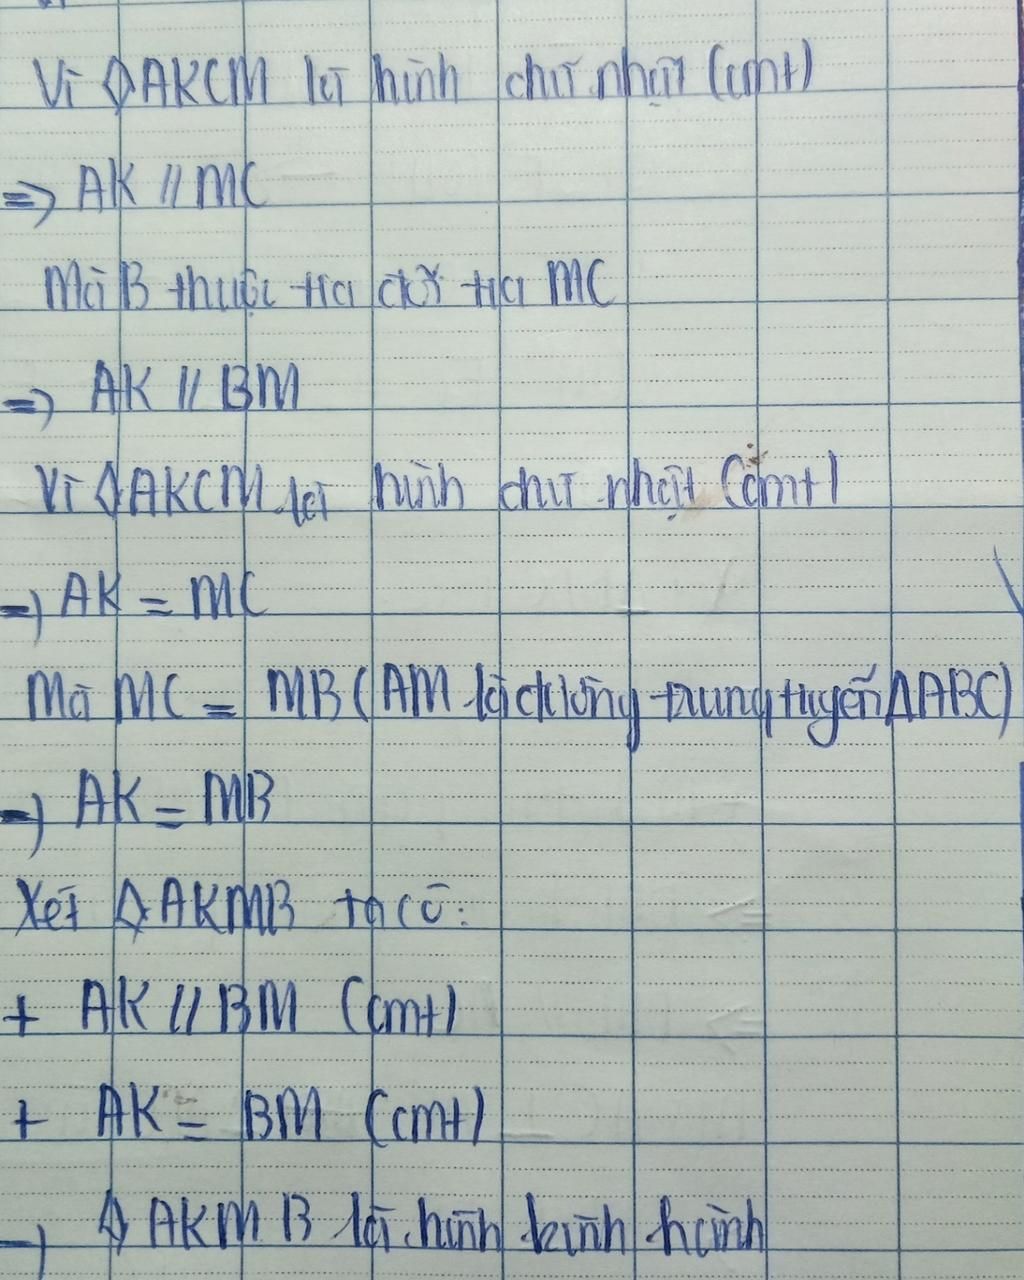 Vì ◊AKCM là hình chữ nhật (cmt)
=> AK // MC
Mà B thuộc tia đối tia MC
=> AK // BM
Vì ◊AKCM là hình chữ nhật (cmt)
=> AK = MC
Mà MC = MB (AM là đường trung tuyến ΔABC)
=> AK = MB
Xét ◊AKMB ta có:
+ AK // BM (cmt)
+ AK = BM (cmt)
=> ◊AKMB là hình bình hành